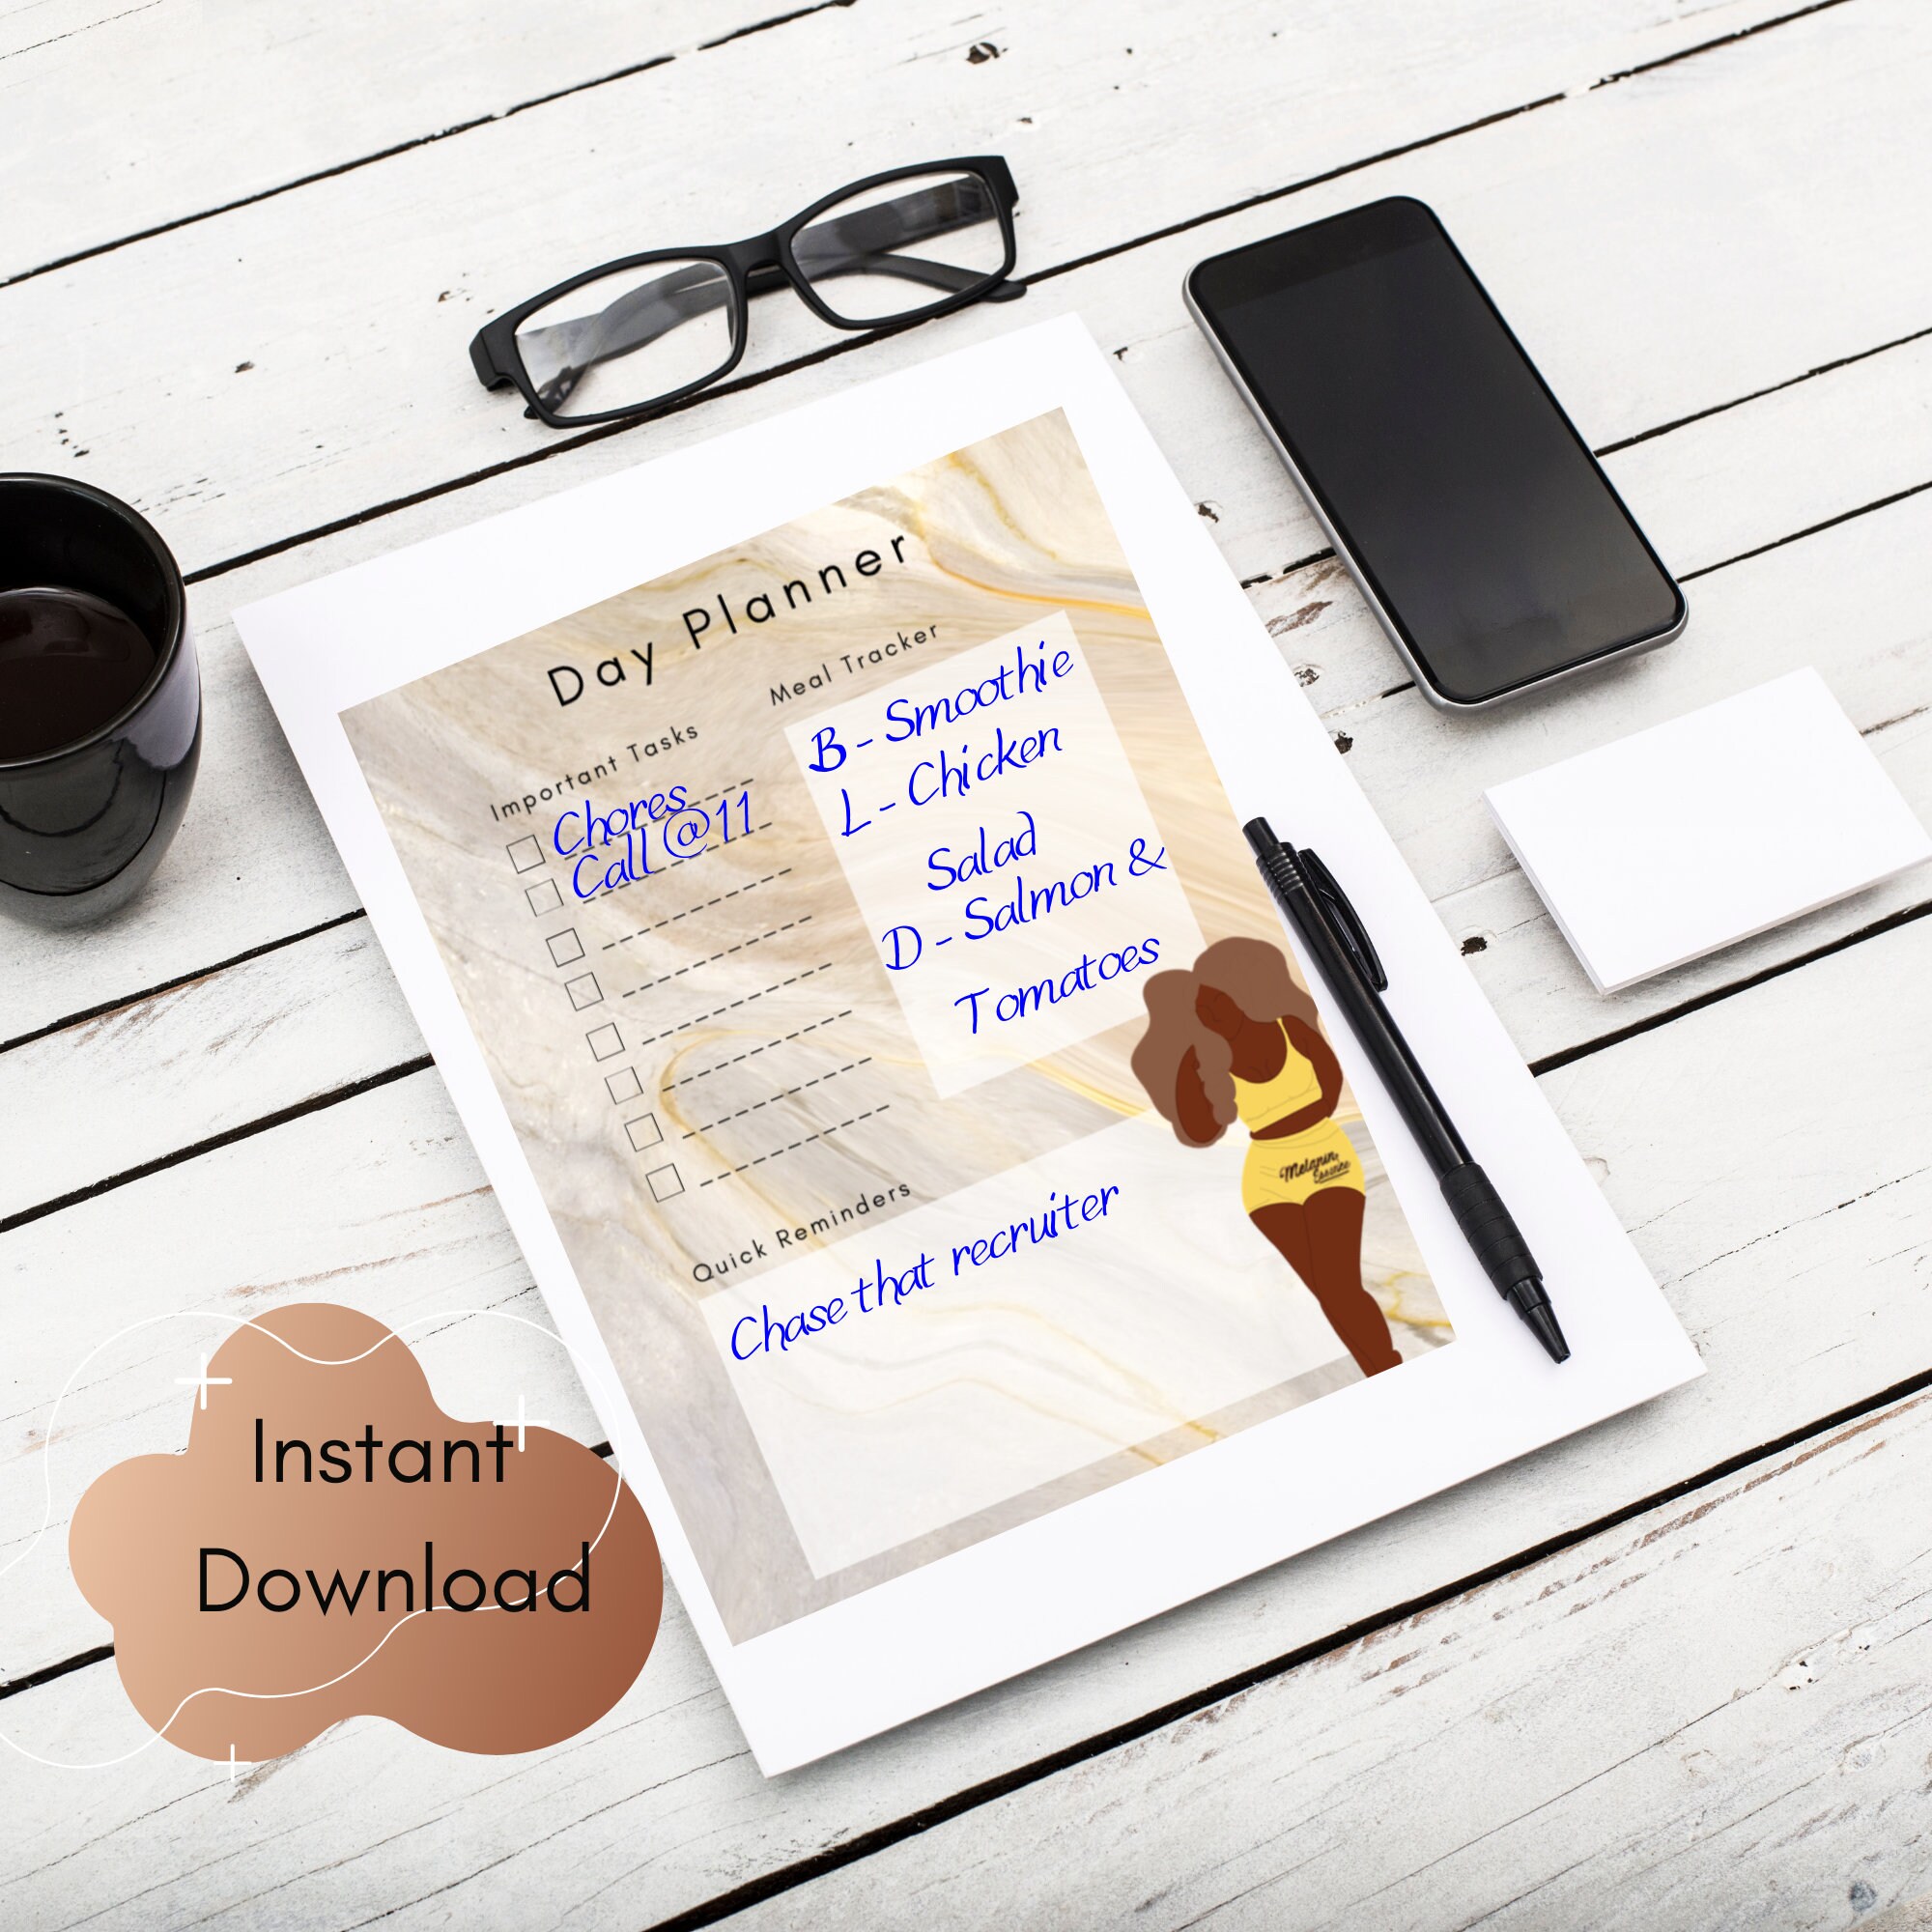 Day Planner
Important Tasks
Chores
Call @11
Meal Tracker
B - Smoothie
L - Chicken
Salad
D - Salmon &
Tomatoes
Melanin
Essence
Quick Reminders
Chase that recruiter
Instant
Download